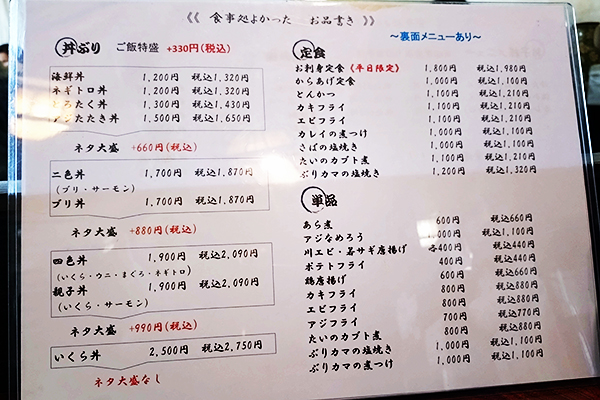 《《 食事処よかった お品書き 》》
～裏面メニューあり～
丼ぶり ご飯特盛 +330円(税込)
海鮮丼 1,200円 税込1,320円
ネギトロ丼 1,200円 税込1,320円
とろたく丼 1,300円 税込1,430円
たたき丼 1,500円 税込1,650円
ネタ大盛 +660円(税込)
二色丼 1,700円 税込1,870円
(ブリ・サーモン)
ブリ丼 1,700円 税込1,870円
ネタ大盛 +880円(税込)
四色丼 1,900円 税込2,090円
(いくら・ウニ・まぐろ・ネギトロ)
親子丼 1,900円 税込2,090円
(いくら・サーモン)
ネタ大盛 +990円(税込)
いくら丼 2,500円 税込2,750円
ネタ大盛なし
定食
お刺身定食《平日限定》 1,800円 税込1,980円
からあげ定食 1,000円 税込1,100円
とんかつ 1,100円 税込1,210円
カキフライ 1,100円 税込1,210円
エビフライ 1,100円 税込1,210円
カレイの煮つけ 1,000円 税込1,100円
さばの塩焼き 1,000円 税込1,100円
たいのカブト煮 1,100円 税込1,210円
ぶりカマの塩焼き 1,200円 税込1,320円
単品
あら煮 600円 税込660円
アジなめろう 1,000円 税込1,100円
川エビ・若サギ唐揚げ 各400円 税込440円
ポテトフライ 400円 税込440円
鶏唐揚げ 600円 税込660円
カキフライ 800円 税込880円
エビフライ 800円 税込880円
アジフライ 700円 税込770円
たいのカブト煮 800円 税込880円
ぶりカマの塩焼き 1,000円 税込1,100円
ぶりカマの煮つけ 1,000円 税込1,100円